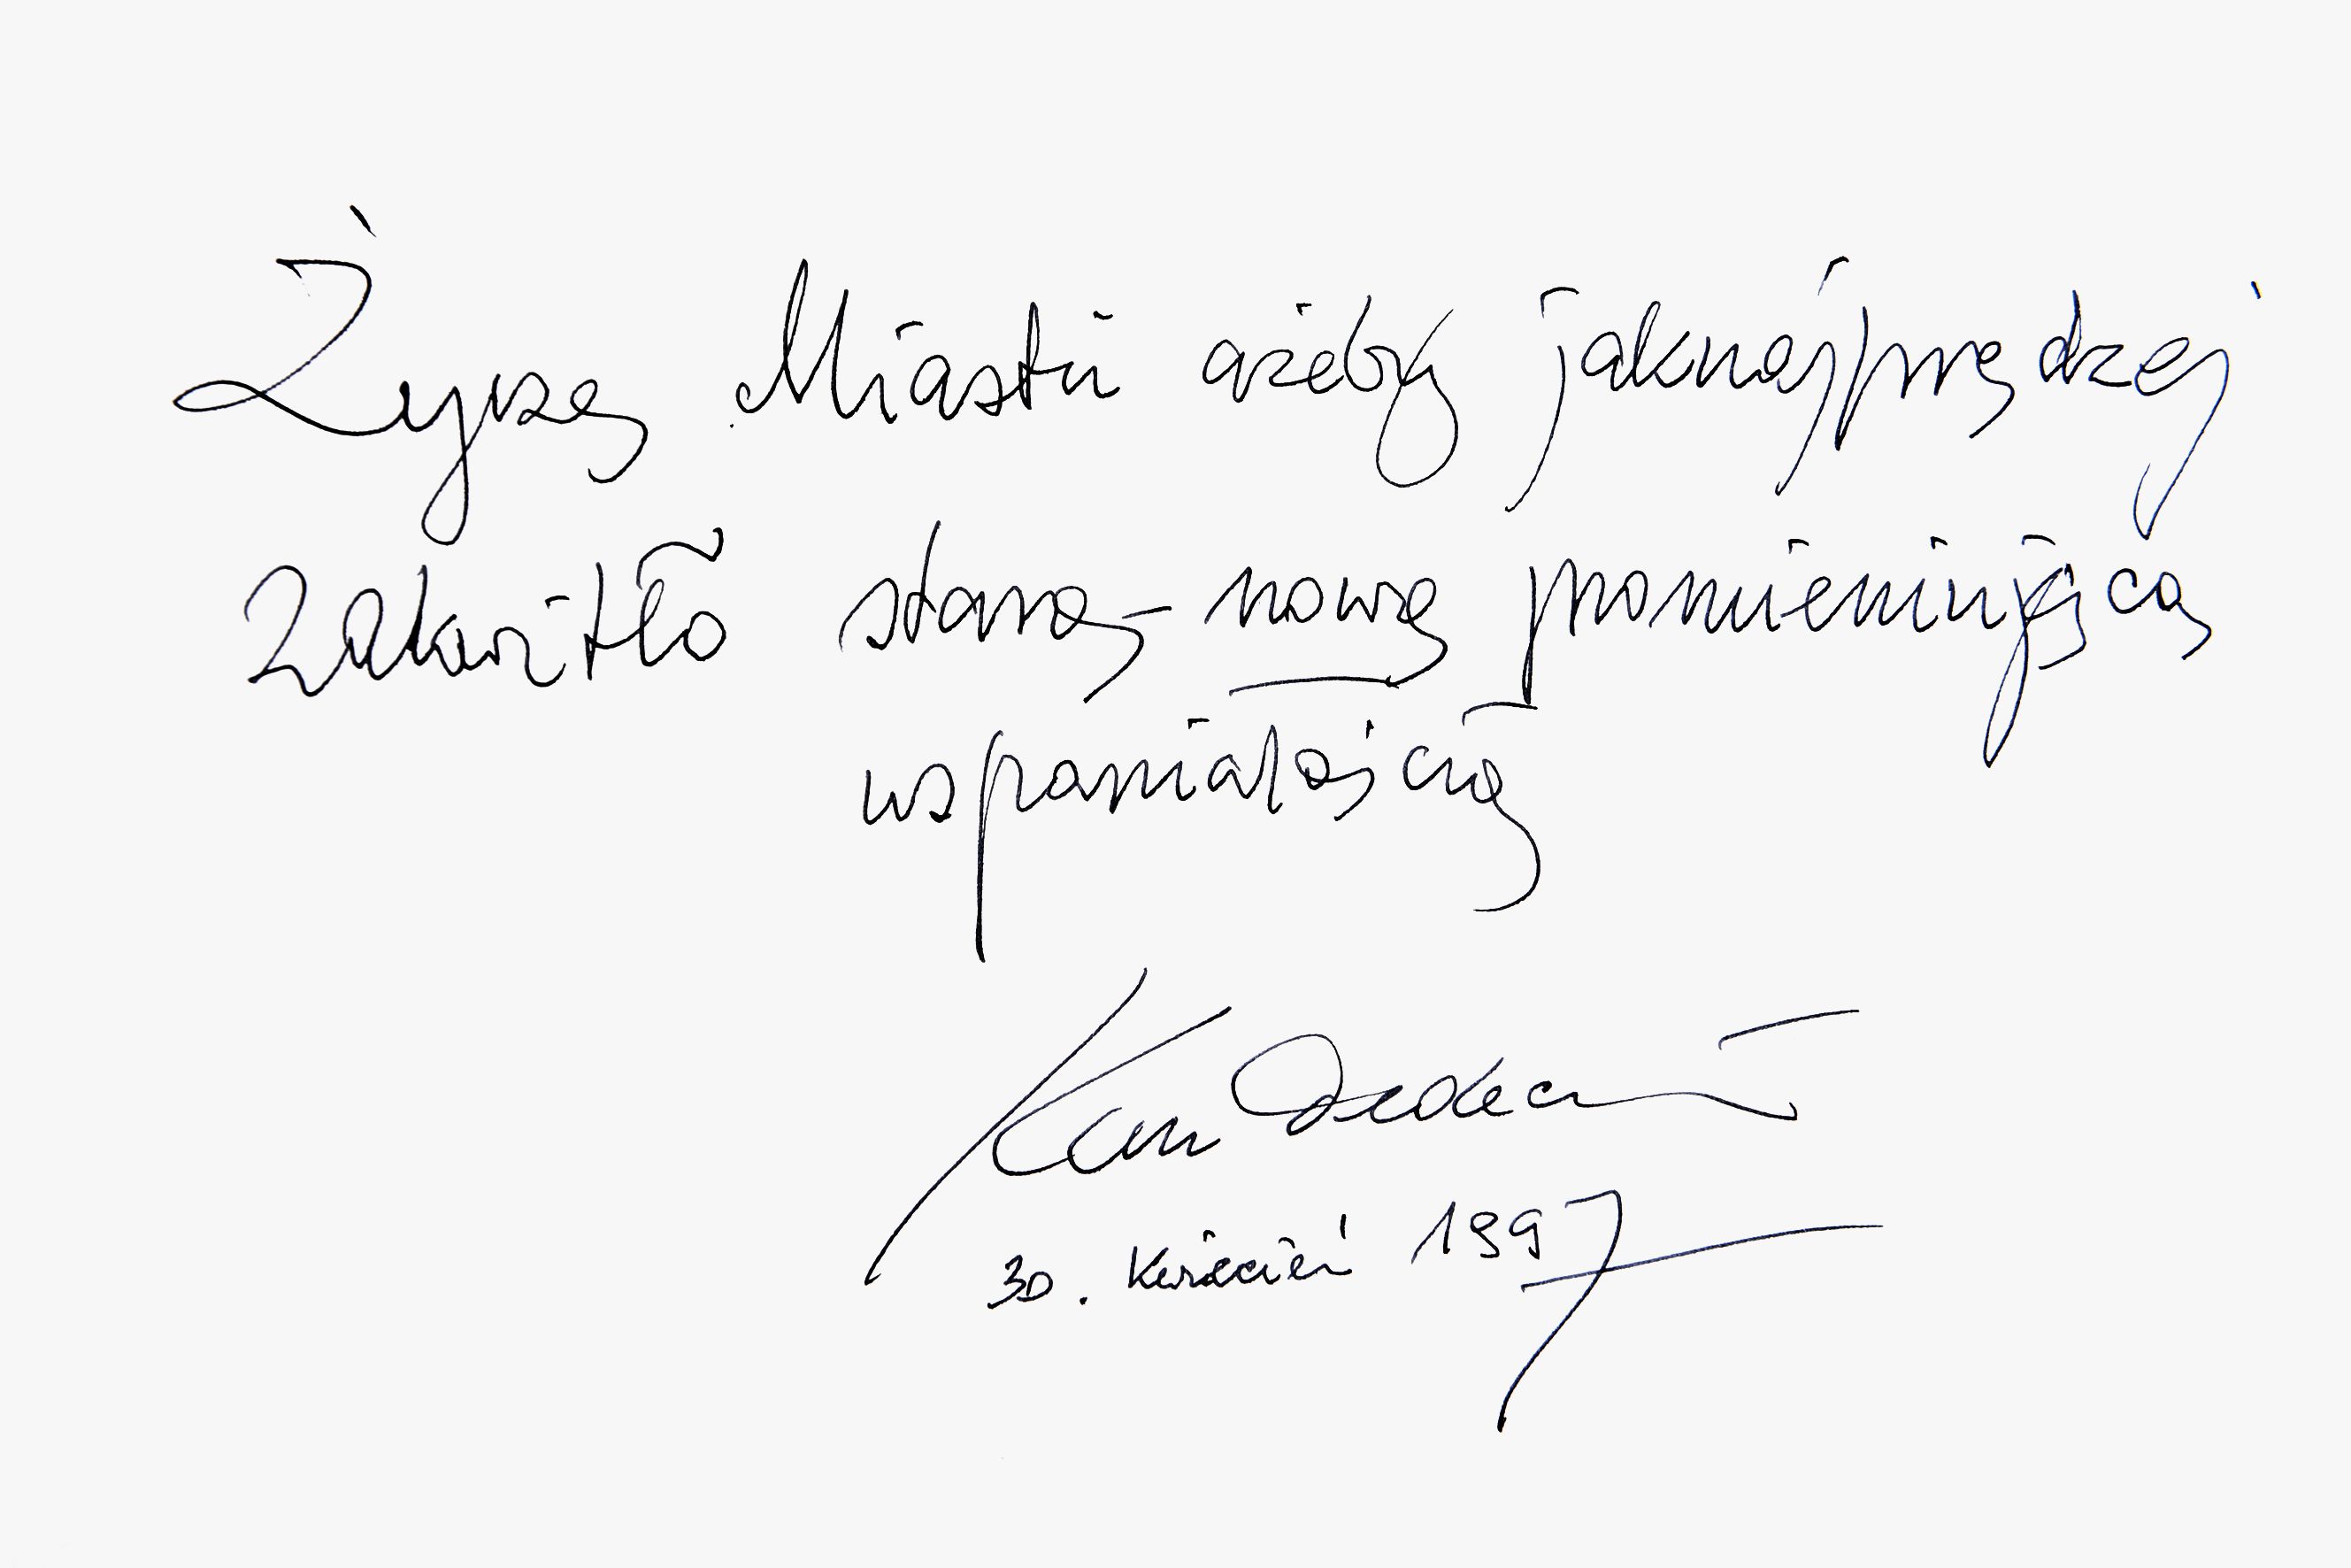 Życzę Miastu ażeby jaknajprędzej
zakwitło starą-nową promieniującą
wspaniałością
Karl Dedecius
30. Kwiecień 1997